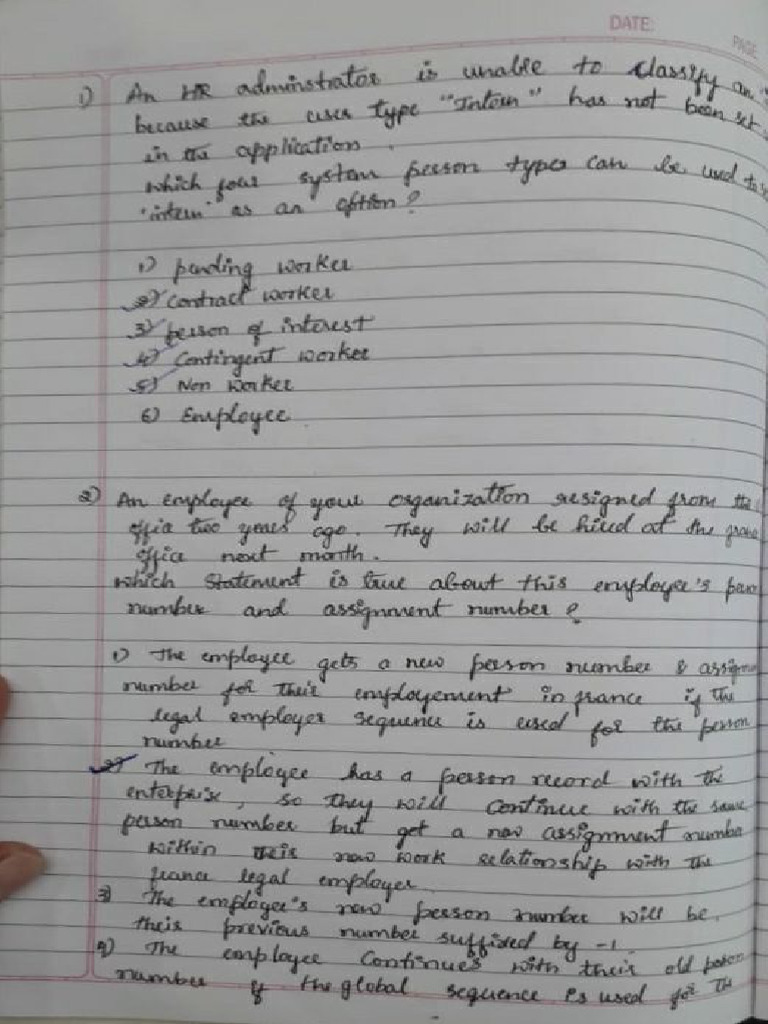 DATE:
PAGE
1) An HR adminstrator is unable to classify an
because the user type "Intern" has not been set
in the application.
which four system person types can be used to
'intern' as an option?
1) pending worker
2) contract worker
3) person of interest
4) Contingent worker
5) Non worker
6) Employee
2) An employee of your organization resigned from the
office two years ago. They will be hired at the
office next month.
which Statement is true about this employee's
number and assignment number?
1) The employee gets a new person number &
number for their employement in france if the
legal employer sequence is used for the person
number
2) The employee has a person record with the
enterprise, so they will continue with the same
person number but get a new assignment
within their new work relationship with the
france legal employer.
3) The employee's new person number will be
their previous number suffixed by -1
4) The employee continues with their old
number if the global sequence is used for the